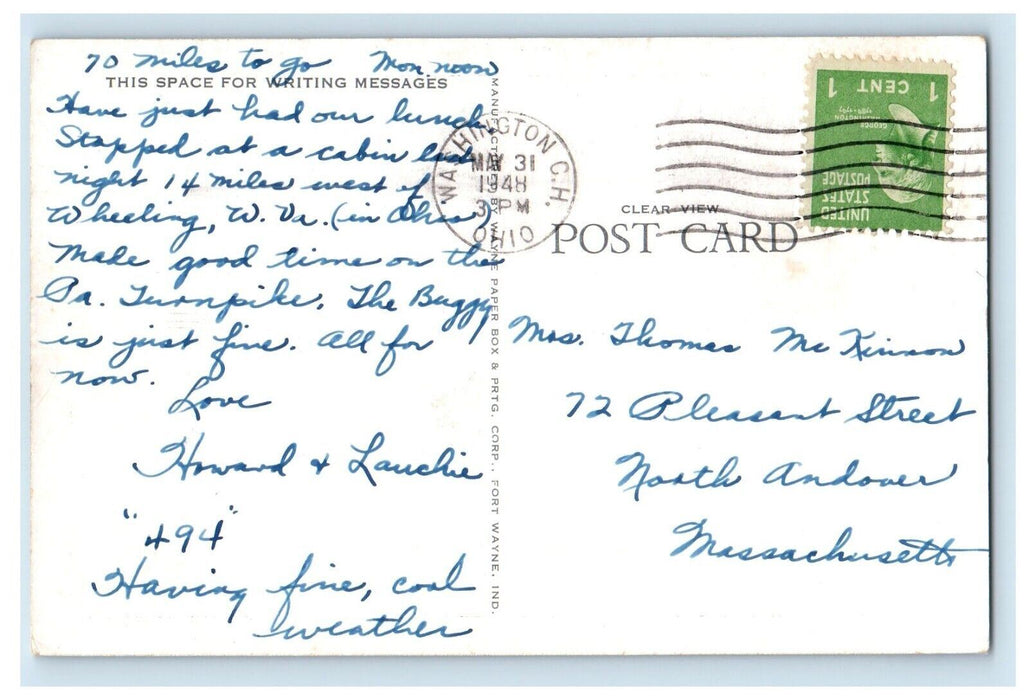 70 miles to go Mon noon
THIS SPACE FOR WRITING MESSAGES
Have just had our lunch
Stopped at a cabin last
night 14 miles west of
Wheeling, W. Va. (in Ohio)
Made good time on the
Pa. Turnpike. The Buggy
is just fine. All for
now.
Love
Howard & Lauchie
"494"
Having fine, cool
weather
MANUFACTURED BY WAYNE PAPER BOX & PRTG. CORP., FORT WAYNE, IND.
WASHINGTON C.H.
MAY 31
1948
3 PM
OHIO
CLEAR VIEW
POST CARD
UNITED
STATES
POSTAGE
GEORGE
WASHINGTON
1789-1797
1 CENT 1
Mrs. Thomas McKinnon
72 Pleasant Street
North Andover
Massachusetts